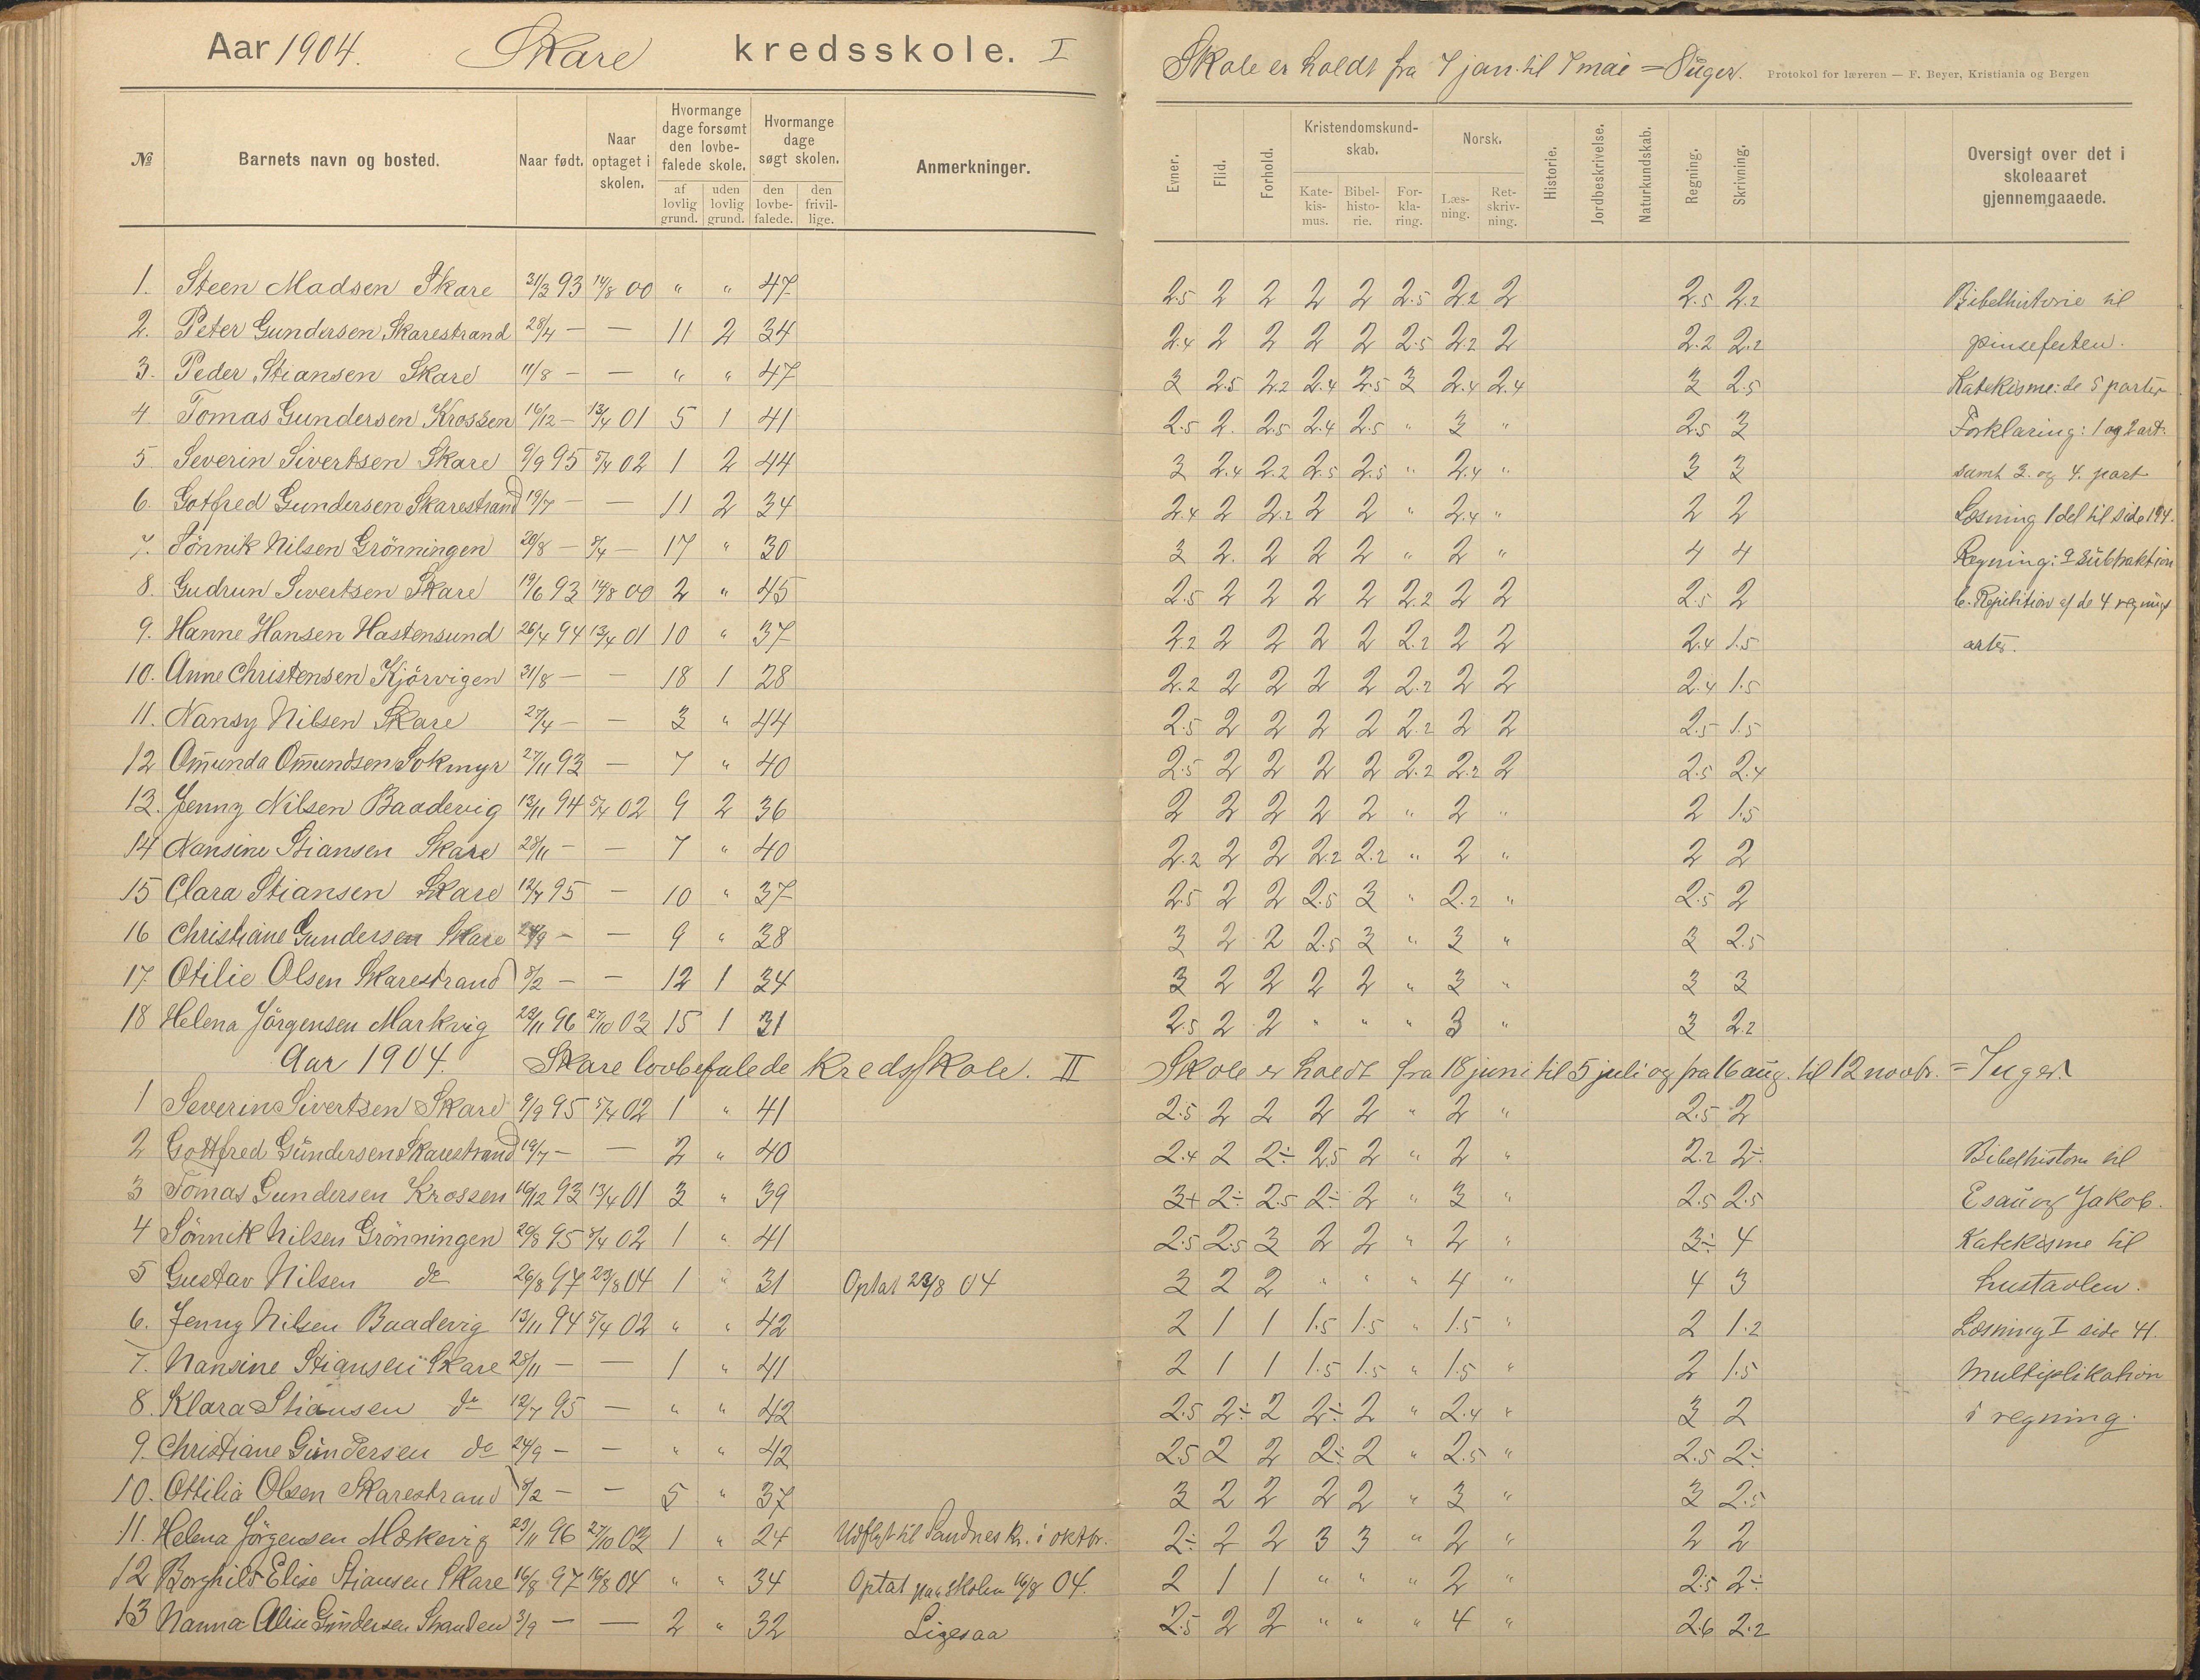 Aar 1904. Skare kredsskole. I
Skole er holdt fra 7 jan. til 7 mai = 8 uger. Protokol for læreren — F. Beyer, Kristiania og Bergen
№ Barnets navn og bosted. Naar født. Naar optaget i skolen. Hvormange dage forsømt den lovbefalede skole. af lovlig grund. uden lovlig grund. Hvormange dage søgt skolen. den lovbefalede. den frivillige. Anmerkninger.
Evner. Flid. Forhold. Kristendomskundskab. Katekismus. Bibelhistorie. Forklaring. Norsk. Læsning. Retskrivning. Historie. Jordbeskrivelse. Naturkundskab. Regning. Skrivning. Oversigt over det i skoleaaret gjennemgaaede.
1. Steen Madsen Skare 31/3 93 14/8 00 " " 47 2.5 2 2 2 2 2.5 2.2 2 2.5 2.2 Bibelhistorie til
2. Peter Gundersen Skarestrand 28/4 — — 11 2 34 2.4 2 2 2 2 2.5 2.2 2 2.2 2.2 pinsefesten.
3. Peder Stiansen Skare 11/8 — — " " 47 3 2.5 2.2 2.4 2.5 3 2.4 2.4 3 2.5 Katekisme: de 5 parter
4 Tomas Gundersen Krossen 16/12 — 13/4 01 5 1 41 2.5 2. 2.5 2.4 2.5 " 3 " 2.5 3 Forklaring: 1 og 2 art.
5 Severin Sivertsen Skare 9/9 95 5/4 02 1 2 44 3 2.4 2.2 2.5 2.5 " 2.4 " 3 3 samt 3. og 4. part
6. Gotfred Gundersen Skarestrand 19/7 — — 11 2 34 2.4 2 2.2 2 2 " 2.4 " 2 2 Læsning 1 del til side 194.
7. Sönnik Nilsen Grönningen 20/8 — 5/4 — 17 " 30 3 2. 2 2 2 " 2 " 4 4 Regning: a subtraktion
8. Gudrun Sivertsen Skare 19/6 93 14/8 00 2 " 45 2.5 2 2 2 2 2.2 2 2 2.5 2 b. Repetition af de 4 regnings
9. Hanne Hansen Hastensund 26/4 94 13/4 01 10 " 37 2.2 2 2 2 2 2.2 2 2 2.4 1.5 arter.
10. Anne Christensen Kjörvigen 31/8 — — 18 1 28 2.2 2 2 2 2 2.2 2 2 2.4 1.5
11. Nansy Nilsen Skare 27/4 — — 3 " 44 2.5 2 2 2 2 2.2 2 2 2.5 1.5
12 Omunda Omundsen Sokmyr 27/11 93 — 7 " 40 2.5 2 2 2 2 2.2 2.2 2 2.5 2.4
13. Jenny Nilsen Baadevig 13/11 94 5/4 02 9 2 36 2 2 2 2 2 " 2 " 2 1.5
14 Nansine Stiansen Skare 28/11 — — 7 " 40 2.2 2 2 2.2 2.2 " 2 " 2 2
15 Clara Stiansen Skare 12/7 95 — 10 " 37 2.5 2 2 2.5 3 " 2.2 " 2.5 2
16 Christiane Gundersen Skare 24/9 — — 9 " 38 3 2 2 2.5 3 " 3 " 3 2.5
17 Otilie Olsen Skarestrand 5/2 — — 12 1 34 3 2 2 2 2 " 3 " 3 3
18 Helena Jörgensen Markvig 23/11 96 27/10 03 15 1 31 2.5 2 2 " " " 3 " 3 2.2
Aar 1904. Skare lovbefalede kredsskole. II Skole er holdt fra 18 juni til 5 juli og fra 16 aug. til 12 novbr. = 7 uger.
1 Severin Sivertsen Skare 9/9 95 5/4 02 1 " 41 2.5 2 2 2 2 " 2 " 2.5 2
2 Gottfred Gundersen Skarestrand 19/7 — — 2 " 40 2.4 2 2÷ 2.5 2 " 2 " 2.2 2÷ Bibelhistorie til
3 Tomas Gundersen Krossen 16/12 93 13/4 01 3 " 39 3+ 2÷ 2.5 2÷ 2 " 3 " 2.5 2.5 Esau og Jakob.
4 Sönnik Nilsen Grönningen 20/8 95 5/4 02 1 " 41 2.5 2.5 3 2 2 " 2 " 3÷ 4 Katekisme til
5 Gustav Nilsen do 26/8 97 23/8 04 1 " 31 Optat 23/8 04 3 2 2 " " " 4 " 4 3 hustavlen.
6. Jenny Nilsen Baadevig 13/11 94 5/4 02 " " 42 2 1 1 1.5 1.5 " 1.5 " 2 1.2 Læsning I side 41.
7. Nansine Stiansen Skare 28/11 — — 1 " 41 2 1 1 1.5 1.5 " 1.5 " 2 1.5 Multiplikation
8. Klara Stiansen do 12/7 95 — " " 42 2.5 2÷ 2 2÷ 2 " 2.4 " 3 2 i regning.
9. Christiane Gundersen do 24/9 — — " " 42 2.5 2 2 2÷ 2 " 2.5 " 2.5 2÷
10. Ottilia Olsen Skarestrand 5/2 — — 5 " 37 3 2 2 2 2 " 3 " 3 2.5
11. Helena Jörgensen Mærkevig 23/11 96 27/10 03 1 " 24 Udflyt til Sandnes kr. i oktbr. 2÷ 2 2 3 3 " 2 " 2 2
12 Borghild Elise Stiansen Skare 16/8 97 16/8 04 " " 34 Optat paa skolen 16/8 04. 2 1 1 " " " 2 " 2.5 2÷
13 Nanna Alise Gundersen Stranden 3/9 — — 2 " 32 Ligesaa 2.5 2 2 " " " 4 " 2.6 2.2